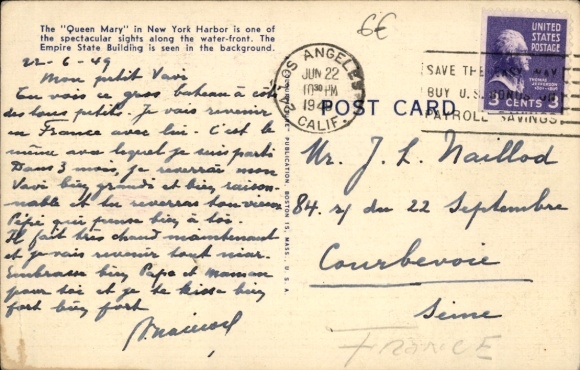 The "Queen Mary" in New York Harbor is one of
the spectacular sights along the water-front. The
Empire State Building is seen in the background.
22-6-49
Mon petit Vavi
Tu vois ce gros bateau à côté
des tous petits. Je vais revenir
en France avec lui. C'est le
même avec lequel je suis parti
Dans 3 mois, je reverrai mon
Vavi bien grandi et bien raison-
nable et tu reverras ton vieux
Pépé qui pense bien à toi.
Il fait très chaud maintenant
et je vais revenir tout noir.
Embrasse bien Papa et Maman
pour toi et je te kisse bien
fort bien fort
6€
LOS ANGELES
JUN 22
10 30 PM
CALIF.
SAVE THE
BUY U.S. BONDS
PAYROLL SAVINGS
UNITED
STATES
POSTAGE
THOMAS
JEFFERSON
3 CENTS 3
POST CARD
PUBLICATION, BOSTON 15, MASS., U.S.A.
Mr. J. L. Naillod
84. r/ du 22 Septembre
Courbevoie
Seine
FRANCE